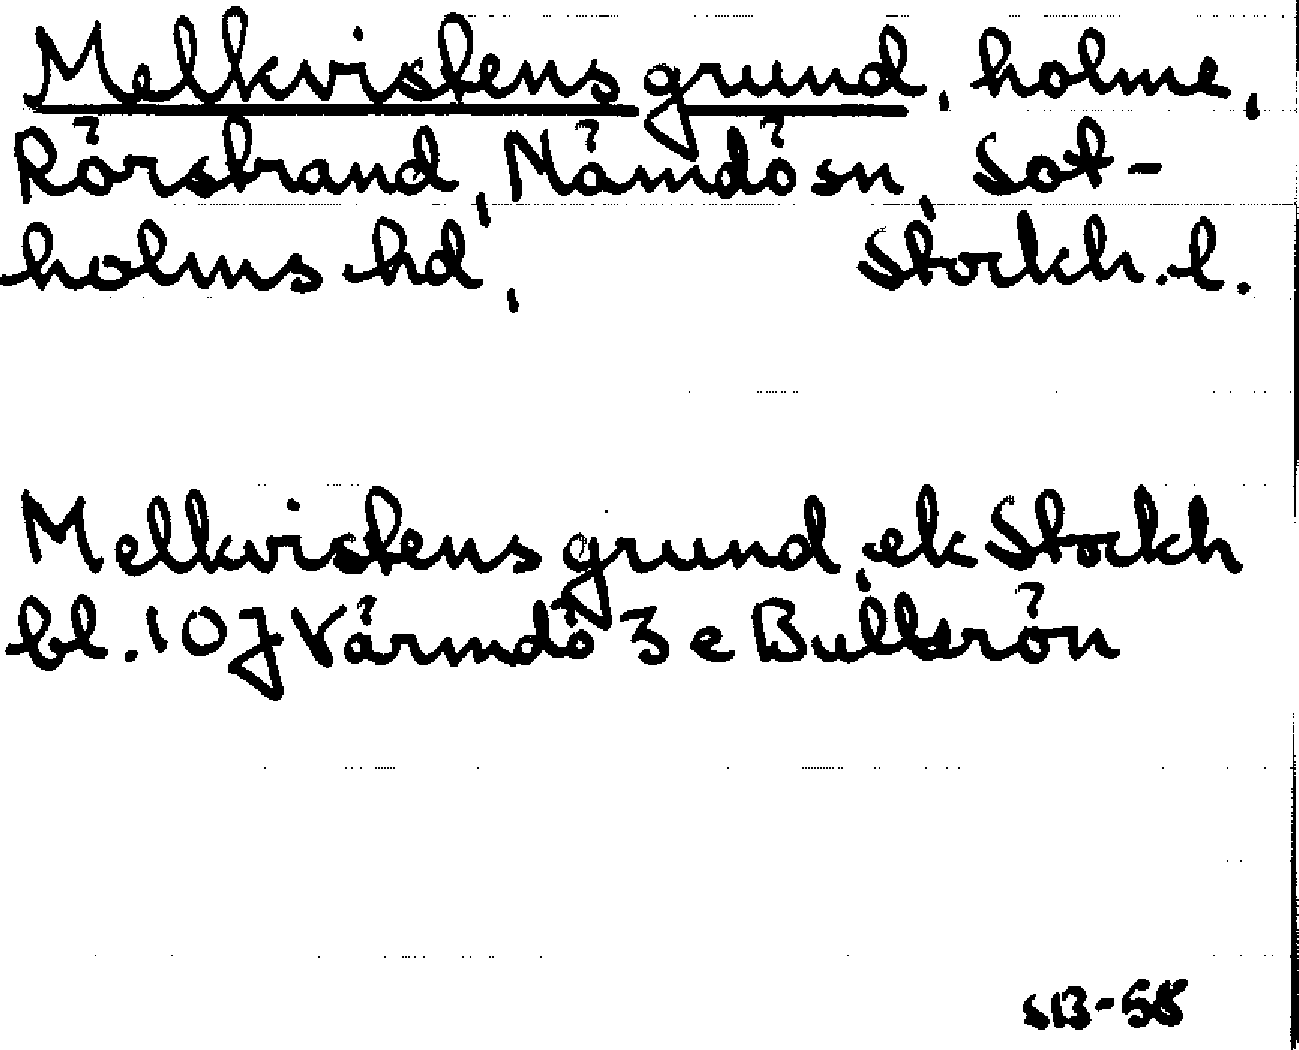 Melkvistens grund, holme,
Rörstrand, Nämdö sn, Sot-
holms hd, Stockh. l.
Melkvistens grund, ek Stockh
bl. 10J Värmdö 3 e Bullerön
SB-58